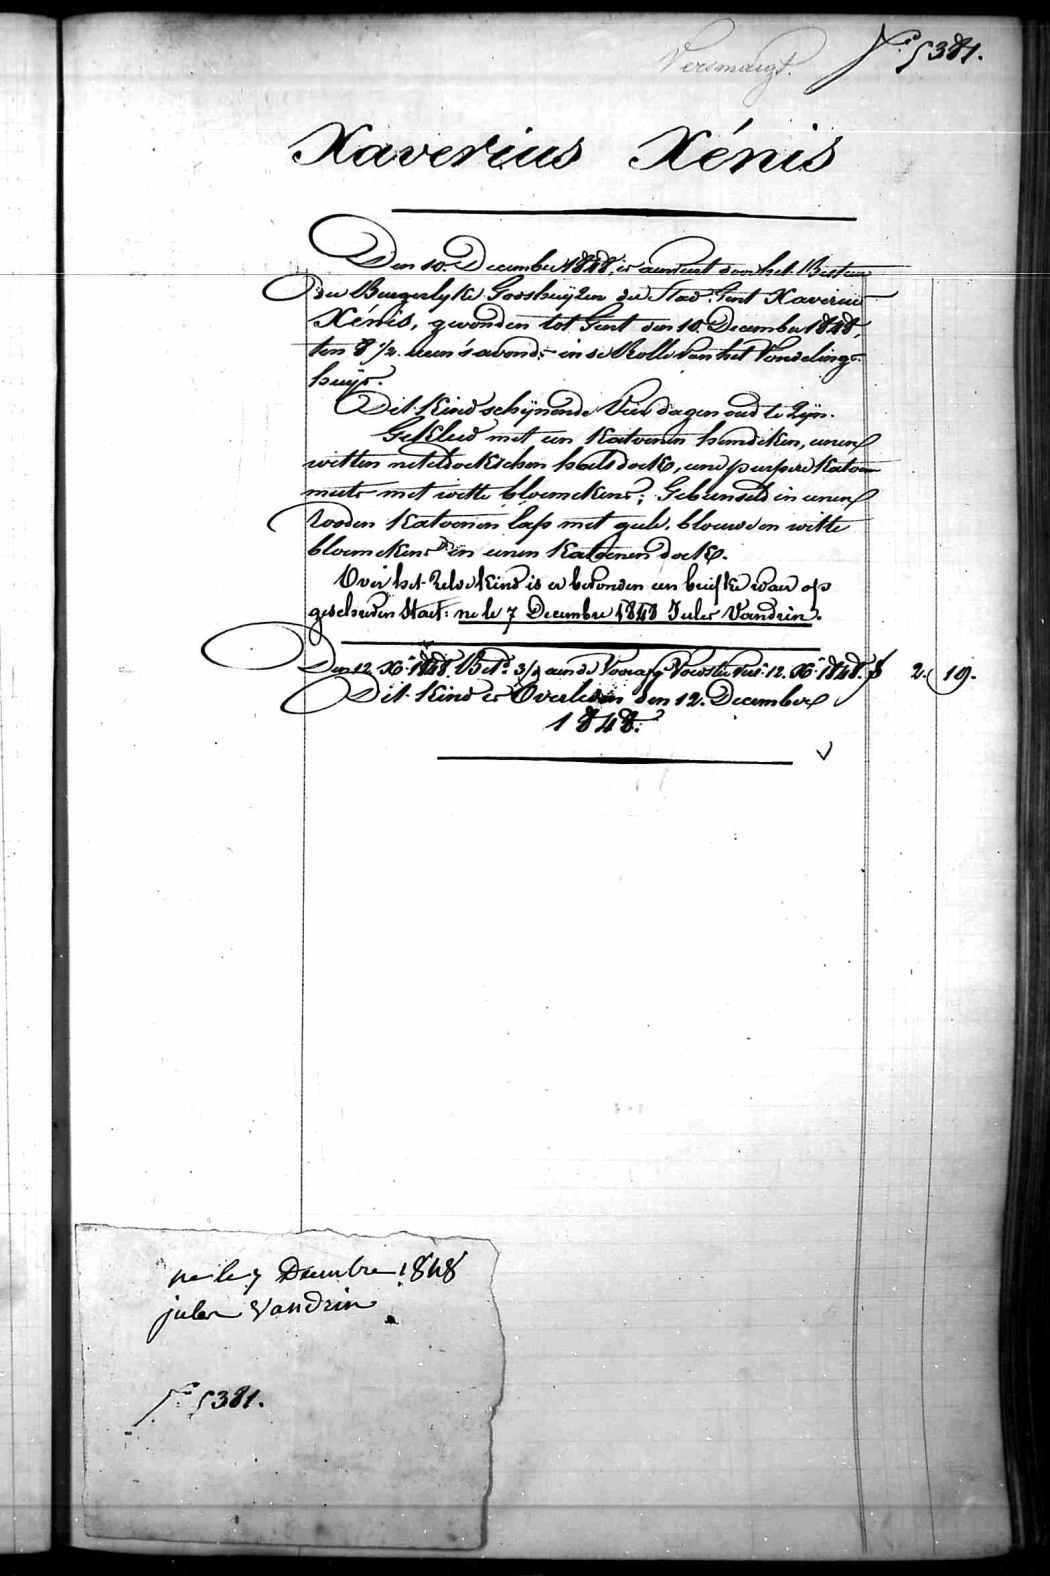 Nº 5381.
Xaverius Xénis
Den 10. December 1848, is aenveert door het Bestuur
der Burgerlyke Godshuyzen der Stad Gent Xaverius
Xénis, gevonden tot Gent den 10. December 1848,
ten 8 1/2. uren 's avonds in de Rolle van het Vondelings
huys.
Dit kind schynende vier dagen oud te zyn.
Gekleed met een katoenen hemdeken, eenen
witten neteldoekschen halsdoek, eene purpere katoen
muts met witte bloemekens; Gebunseld in eenen
rooden katoenen lap met gele, blauwe en witte
bloemekens en eenen katoenen doek.
Over het zelve kind is er bevonden een briefke waer op
geschreven staet: ne le 7 Decembre 1848 Jules Vandrin.
Den 12. Xb. 1848. Bet. 3/9 aen de 12. Xb. 1848. f 2. 19.
Dit kind is Overleden den 12. December
1848.
ne le 7 Decembre 1848
jules Vandrin
Nº 5381.